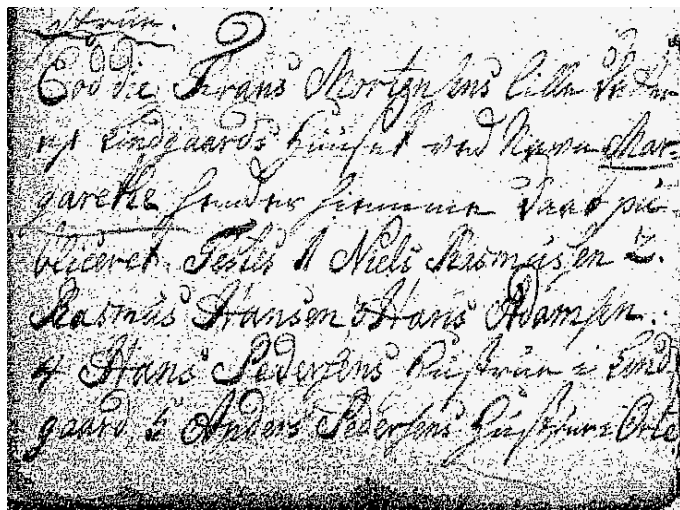 strue.
Eod die Frans Mortensens lille Datter
af Lindgaards Huuset ved Navn Mar-
garethe hendes hiemme Daab pu-
bliceret. Testes 1 Niels Rasmusen 2.
Rasmus Hansen, 3 Hans Adamsen.
4 Hans Pedersens Hustrue i Lind
gaard 5 Anders Pedersens Hustrue i Orte